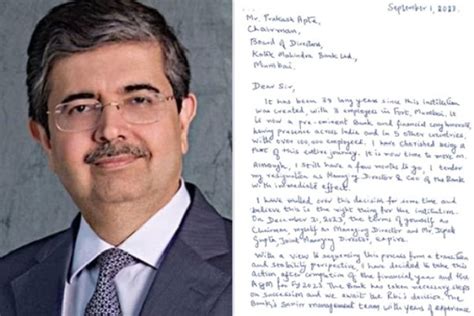 September 1, 2023.
Mr. Prakash Apte,
Chairman,
Board of Directors,
Kotak Mahindra Bank Ltd.,
Mumbai.
Dear Sir,
It has been 38 long years since this institution
was created, with 3 employees in Fort, Mumbai. It
is now a pre-eminent Bank and financial conglomerate
having presence across India and in 5 other countries,
with over 100,000 employees. I have cherished being a
part of this entire journey. It is now time to move on.
Although, I still have a few months to go, I tender
my resignation as Managing Director & CEO of the Bank
with immediate effect.
I have mulled over this decision for some time and
believe this is the right thing for the institution.
On December 31, 2023, the terms of yourself as
Chairman, myself as Managing Director and Mr. Dipak
Gupta, Joint Managing Director, expire.
With a view to sequencing this process from a transition
and stability perspective, I have decided to take this
action after completion of the financial year and the
AGM for FY 2023. The Bank has taken necessary steps
on succession and we await the RBI's decision. The
Bank's senior management team with years of experience